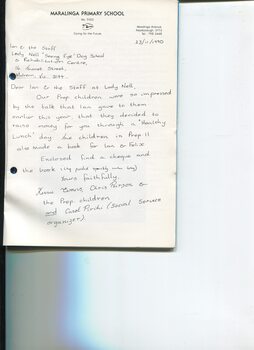 MARALINGA PRIMARY SCHOOL
Caring for the Future
23/11/1990
Ian & the Staff
Lady Nell "Seeing Eye" Dog School
& Rehabilitation Centre,
Street,
Vic. 3144.
Dear Ian & the Staff at Lady Nell,
Our Prep children were so impressed
by the talk that Ian gave to them
earlier this year that they decided to
raise money for you through a 'Healthy
Lunch' day. The children in Prep II
also made a book for Ian & Felix
Enclosed find a cheque and
the book
Yours faithfully,
Chris Pearson &
the Prep children
and Carol (Social Service
organizer).